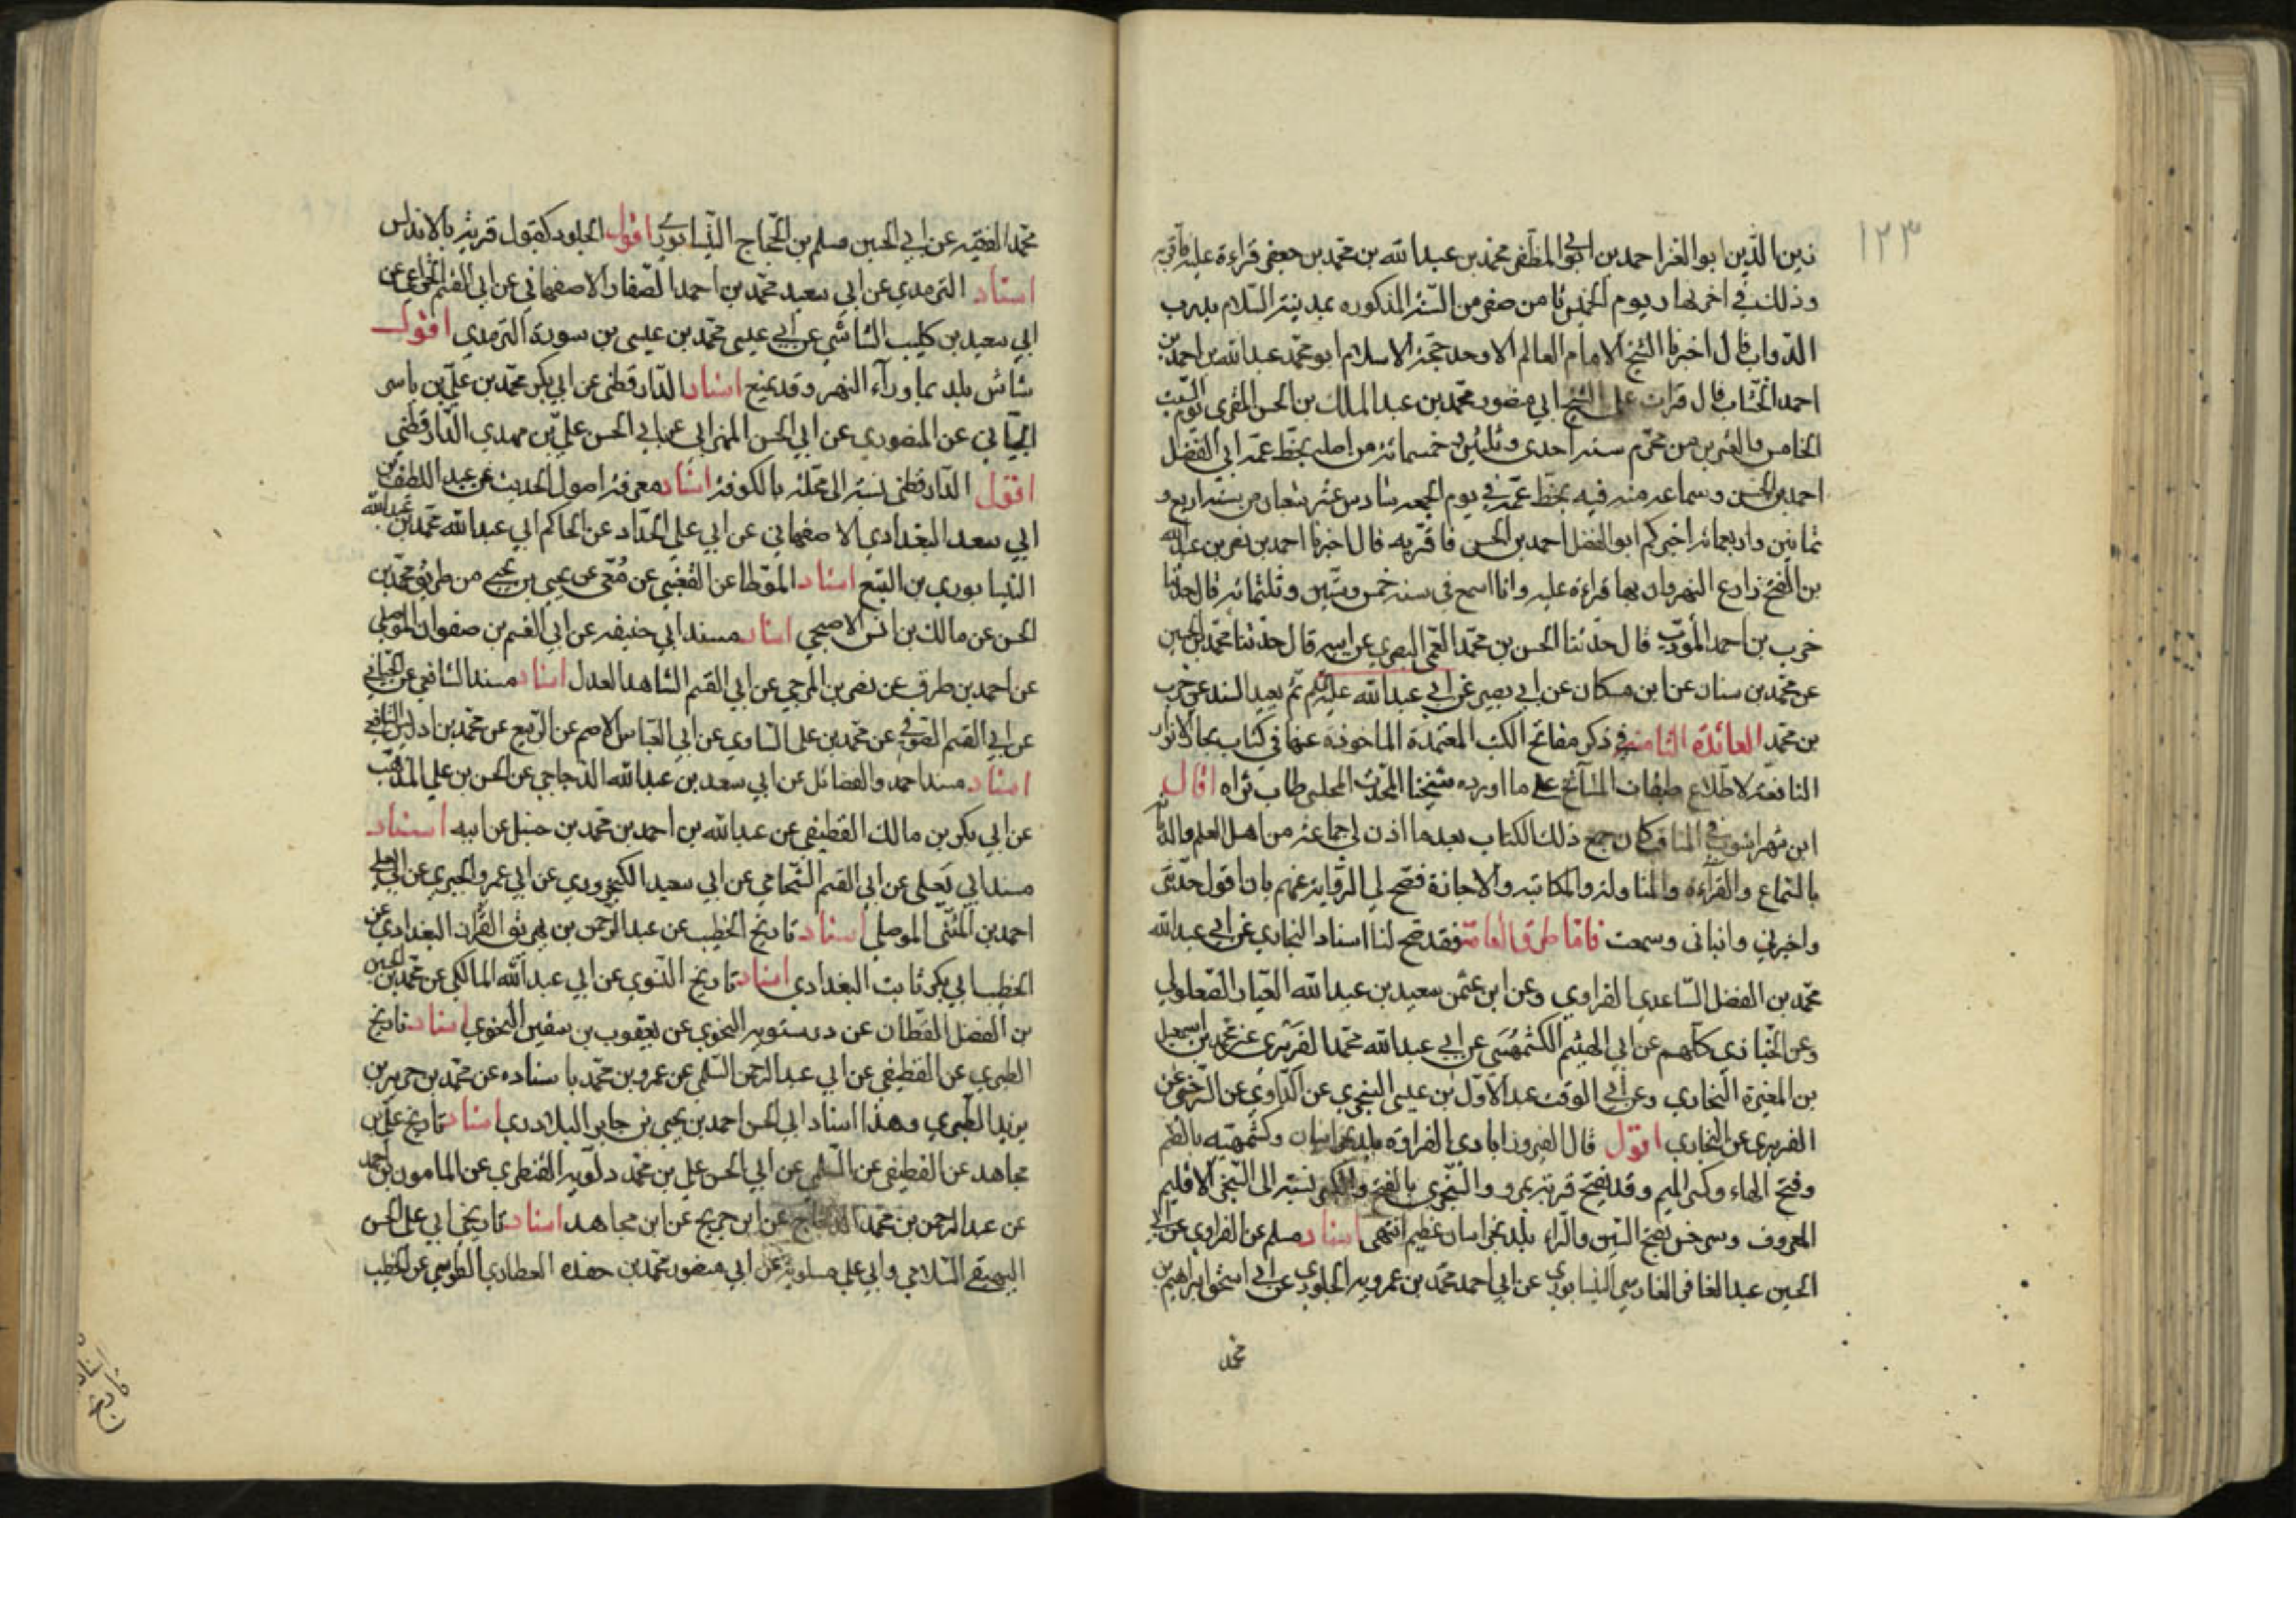 ١٢٣
زين الدين ابو العز احمد بن ابي المظفر محمد بن عبد الله بن محمد بن جعفر قراءة عليه فاقر به
وذلك في اخر نهار يوم الخميس ثامن صفر من السنة المذكوره بمدينة السلام بدرب
الدواب قال اخبرنا الشيخ الامام العالم الاوحد حجة الاسلام ابو محمد عبد الله بن احمد بن
احمد الخشاب قال قرات على الشيخ ابي منصور محمد بن عبد الملك بن الحسن المقري يوم السبت
الخامس والعشرين من محرم سنة احدى وثلثين وخمسمائة من اصله بخط عمه ابي الفضل
احمد بن الحسن وسماعه منه فيه بخط عمه في يوم الجمعه سادس عشر شعبان من سنة اربع و
ثمانين واربعمائة اخبركم ابو الفضل احمد بن الحسن فاقر به قال اخبرنا احمد بن نصر بن عبد الله
بن الفتح زارع النهروان بها قراءة عليه وانا اسمع في سنة خمس وستين وثلثمائة قال حدثنا
حرب بن احمد المؤدب قال حدثنا الحسن بن محمد العمي البصري عن ابيه قال حدثنا محمد بن الحسين
عن محمد بن سنان عن ابن مسكان عن ابي بصير عن ابي عبد الله عليه السلام ثم يعيد السند عن حرب
بن محمد العائدة الثامنة في ذكر مفاتح الكتب المعتمدة الماخوذة عنها في كتاب بحار الانوار
النافعة لاطلاع طبقات المشائخ على ما اورده شيخنا المحدث المجلسي طاب ثراه قال
ابن شهراشوب في المناقب كان جمع ذلك الكتاب بعد ما اذن لي جماعة من اهل العلم والديانة
بالسماع والقراءة والمناولة والمكاتبه والاجازة فصح لي الرواية عنهم بان اقول حدثني
واخبرني وانباني وسمعت فاما طرق العامة فقد صح لنا اسناد البخاري عن ابي عبد الله
محمد بن الفضل الساعدي الفراوي وعن ابن عثمن سعيد بن عبد الله العيار الصعلوكي
وعن الخبازي كلهم عن ابي الهيثم الكشمهني عن ابي عبد الله محمد الفربري عن محمد بن اسمعيل
بن المغيرة البخاري وعن ابي الوقت عبد الاول بن عيسى السنجري عن الداودي عن السرخسي عن
الفربري عن البخاري اقول قال الفيروزابادى الفراوة بلد بخراسان وكشمهنه بالضم
وفتح الهاء وكسر الميم وقد يفتح قرية بمرو والسنجري بالفتح والكسر نسبة الى السنجر الاقليم
المعروف وسرخس بفتح السين والراء بلد بخراسان عظيم انتهى اسناد مسلم عن الفراوي عن ابي
الحسين عبد الغافر الفارسي النيسابوري عن ابي احمد محمد بن عمرويه الجلودي عن ابي اسحق ابراهيم بن
محمد
محمد الفقيه عن ابي الحسين مسلم بن الحجاج النيسابوري اقول الجلود كقبول قرية بالاندلس
اسناد الترمدي عن ابي سعيد محمد بن احمد الصفار الاصفهاني عن ابي القسم الخزاعي عن
ابي سعيد بن كليب الشاشي عن ابي عيسى محمد بن عيسى بن سورة الترمدي اقول
شاش بلد بماوراء النهر وقد يمنع اسناد الدارقطني عن ابي بكر محمد بن علي بن ياسر
الجياني عن المنصوري عن ابي الحسن المهرابي عن ابي الحسن علي بن مهدي الدارقطني
اقول الدارقطني نسبة الى محلة بالكوفة اسناد معرفة اصول الحديث عن عبد اللطيف بن
ابي سعد البغدادي الاصفهاني عن ابي علي الحداد عن الحاكم ابي عبد الله محمد بن عبد الله
النيسابوري بن البيع اسناد الموطا عن القعنبي عن معن عن يحيى بن يحيى من طريق محمد بن
الحسن عن مالك بن انس الاصبحي اسناد مسند ابي حنيفه عن ابي القسم بن صفوان الموصلي
عن احمد بن طوق عن نصر بن المرجي عن ابي القسم الشاهد العدل اسناد مسند الشافعي عن الجياني
عن ابي القسم الصوفي عن محمد بن علي الساوي عن ابي العباس الاصم عن الربيع عن محمد بن ادريس الشافعي
اسناد مسند احمد والفضائل عن ابي سعد بن عبد الله الدجاجي عن الحسن بن علي المذهب
عن ابي بكر بن مالك القطيفي عن عبد الله بن احمد بن محمد بن حنبل عن ابيه اسناد
مسند ابي يعلى عن ابي القسم الشحامي عن ابي سعيد الكنجرودي عن ابي عمرو الحيري عن ابي يعلى
احمد بن المثنى الموصلي اسناد تاريخ الخطيب عن عبد الرحمن بن بهريق القزاز البغدادي عن
الخطيب ابي بكر ثابت البغدادي اسناد تاريخ النسوي عن ابي عبد الله المالكي عن محمد بن الحسين
بن الفضل القطان عن درستويه النحوي عن يعقوب بن سفين النحوي اسناد تاريخ
الطبري عن القطيفي عن ابي عبد الرحمن السلمي عن عمرو بن محمد باسناده عن محمد بن جرير بن
يزيد الطبري وهذا اسناد ابي الحسن احمد بن يحيى بن جابر البلادري اسناد تاريخ علي بن
مجاهد عن القطيفي عن السلمي عن ابي الحسن علي بن محمد دلويه القنطري عن المامون بن احمد
عن عبد الرحمن بن محمد عن ابن جريج عن ابن مجاهد اسناد تاريخي ابي علي الحسن
البيهقي السلامي وابي علي مسكويه عن ابي منصور محمد بن حفده العطاري الطوسي عن الخطيب
اسناد
تاريخ